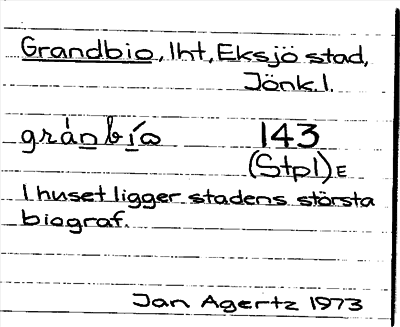 Grandbio, lht, Eksjö stad,
Jönk. l.
grànbío 143
(Stpl) E
I huset ligger stadens största
biograf.
Jan Agertz 1973